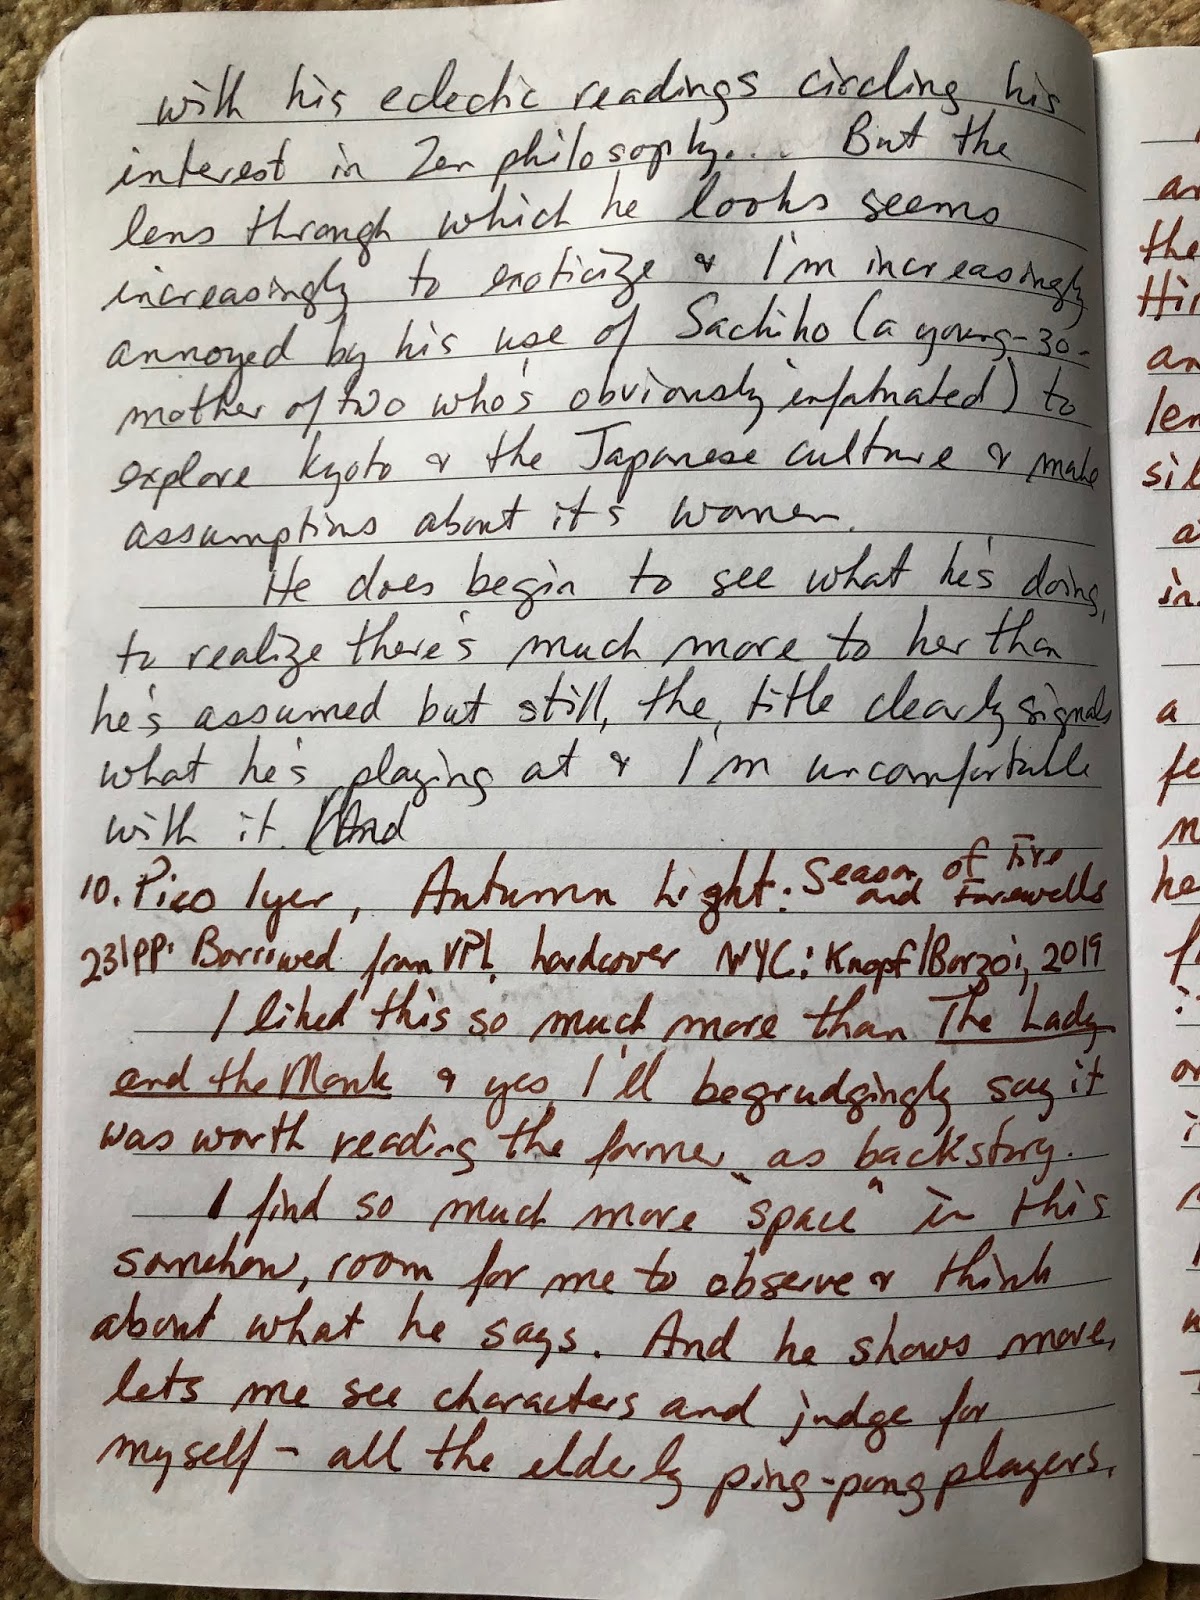 with his eclectic readings circling his
interest in Zen philosophy... But the
lens through which he looks seems
increasingly to exoticize & I'm increasingly
annoyed by his use of Sachiko (a young-30-
mother of two who's obviously infatuated) to
explore Kyoto & the Japanese culture & make
assumptions about it's women.
He does begin to see what he's doing,
to realize there's much more to her than
he's assumed but still, the title clearly signals
what he's playing at & I'm uncomfortable
with it. (And
10. Pico Iyer, Autumn Light: Season of Fire
and Farewells
231pp. Borrowed from VPL. hardcover NYC: Knopf/Borzoi, 2019
I liked this so much more than The Lady
and the Monk & yes, I'll begrudgingly say it
was worth reading the former as backstory.
I find so much more "space" in this
somehow, room for me to observe & think
about what he says. And he shows more,
lets me see characters and judge for
myself - all the elderly ping-pong players,
an
the
Hir
an
len
sil
a
in
a
fe
he